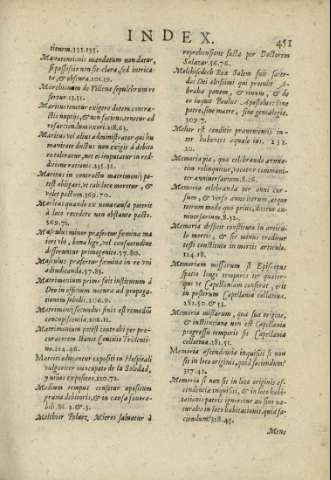 INDEX.
451
tionem.133.135.
Manutentionis mandatum non datur,
si possessio non sit clara, sed intrica-
ta, & obscura.101.39.
de Villena sepulchrum re
Maritus tenetur exigere dotem contra-
ctis nuptijs, & non faciens, tenetur ad
resarciendum uxori.218.63.
Maritus vel alius administrator qui hu
maniter dotem non exigit à debito
re toleratur, nec ei imputatur in red-
ditione rationis.235.32.
Maritus in contractu matrimonij po-
test obligari, ut tali loco moretur, &
valet pactum.369.70.
Maritus quando ex nova causa poterit
à loco recedere non obstante pacto.
369.75.
Masculus minor praefertur foemina ma
iori ubi, homo lege, vel consuetudine
differuntur primogenita.57.80.
Masculus praefertur foemina in re uni
adiudicanda.57.83.
Matrimonium primo fuit institutum à
Deo in officium naturae ad propaga-
tionem sobolis.206.9.
Matrimonij secundus finis est remediũ
concupiscentiae.206.11.
Matrimonium potest contrahi per pro-
curatorem stante Concilio Tridenti-
no.224.46.
Matriti alimentor expositi in Hospitali
vulgariter nuncupato de la Soledad,
y niños expositos.220.71.
Medium tempus censetur appositum
gratia debitoris, & in causa favora-
bili.86.2.&.3.
Melchior Pelaez, Mieres salvatur à
reprehensione facta per Doctorem
Salazar.56.76.
Melchisedech Rex Salem fuit sacer-
dos Dei altissimi qui praeivit A-
braha ponem, & vinum, & de
eo inquit Paulus Apostolus: sine
patre, sine matre, sine genealogia.
309.7.
Melior est conditio praeveniens in-
ter habentes aequale ius. 232.
20.
Memoria pia, qua celebrando annua-
tim relinquitur, vocatur communi-
ter anniversarium.8.26.
Memoria celebranda ter anni cur-
sum, & versis anni iterum, atque
iterum modo quo prius, dicitur an-
niversarium.8.32.
Memoria defecit constituta in articu-
lo mortis, & sic minus creditur
testi constituto in mortis articulo.
114.18.
Memoriam missarum si Episcopus
spatio longi temporis ter quater-
que ut Capellaniam conferat, erit
in posterum Capellania collativa.
281.50.& 51.
Memoria missarum, qua sui origine,
& institutione non est Capellania
progressu temporis sit Capellania
collativa.281.51.
Memoria ascendentis inquisiti si non
sit in loco originis, quid faciendum?
317.42.
Memoria si non sit in loco originis as-
cendentis inquisiti, & in loco habi-
tationis patris ignoretur an sint na-
turales in loco habitationis, quid fa-
ciendum?318.45.
Mens